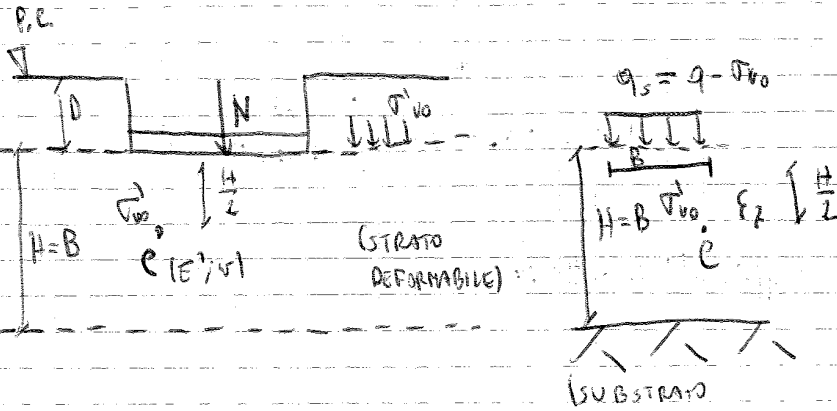 P.C.
D
N
σ'vo
q_s = q - σvo
B
H/2
σ'vo
H=B
C (E'; ν)
(STRATO
DEFORMABILE)
H=B
σ'vo
ε_z
H/2
C
(SUBSTRATO